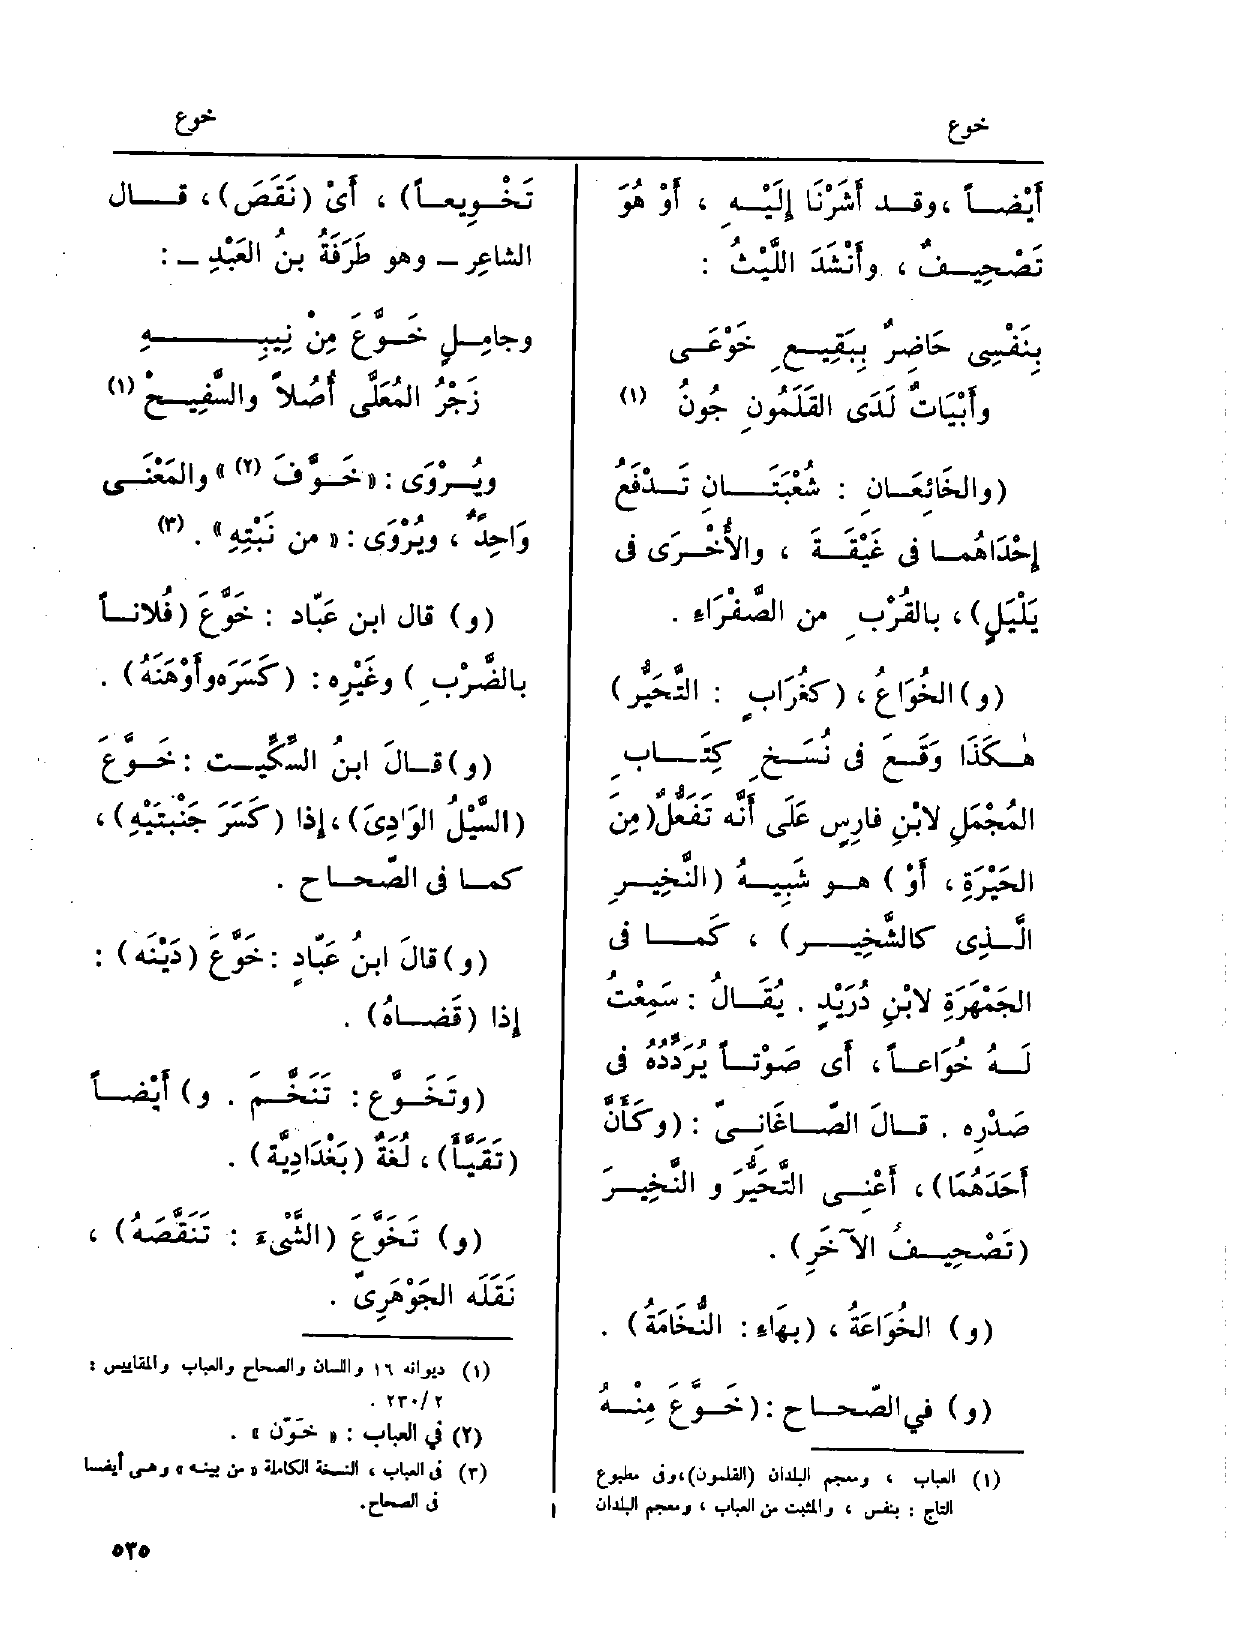 خوع
خوع
أَيْضاً ، وقد أَشَرْنَا إِلَيْهِ ، أَوْ هُوَ
تَصْحِيفٌ ، وأَنْشَدَ اللَّيْثُ :
بِنَفْسِى حَاضِرٌ بِبَقِيعِ خَوْعَى
وأَبْيَاتٌ لَدَى القَلَمُونِ جُونُ (١)
(والخَائِعَانِ : شُعْبَتَانِ تَدْفَعُ
إِحْدَاهُما فى غَيْقَةَ ، والأُخْرَى فى
يَلْيَلٍ) ، بالقُرْبِ من الصَّفْرَاءِ .
(و) الخُوَاعُ ، (كغُرَابٍ : التَّحَيُّر)
هٰكَذَا وَقَعَ فى نُسَخِ كِتَابِ
المُجْمَلِ لابْنِ فارِس عَلَى أَنَّه تَفَعُّلٌ (مِنَ
الحَيْرَةِ ، أَوْ ) هو شَبِيهُ (النَّخِيرِ
الَّذِى كالشَّخِيرِ) ، كَما فى
الجَمْهَرَةِ لابْنِ دُرَيْدٍ . يُقَالُ : سَمِعْتُ
لَهُ خُوَاعاً ، أَى صَوْتاً يُرَدِّدُهُ فى
صَدْرِه . قالَ الصّاغَانِىّ : (وكَأَنَّ
أَحَدَهُمَا) ، أَعْنِى التَّحَيُّرَ و النَّخِيرَ
(تَصْحِيفُ الآخَرِ) .
(و) الخُوَاعَةُ ، (بهَاءٍ : النُّخَامَةُ) .
(و) في الصّحاح : (خَوَّعَ مِنْهُ
(١) العباب ، ومعجم البلدان (القلمون) ، وفى مطبوع
التاج : بنفس ، والمثبت من العباب ، ومعجم البلدان
تَخْوِيعاً) ، أَىْ (نَقَصَ) ، قال
الشاعِر ــ وهو طَرَفَةُ بنُ العَبْدِ ــ :
وجامِلٍ خَوَّعَ مِنْ نِيبِهِ
زَجْرُ المُعَلَّى أُصُلاً والسَّفِيحْ (١)
ويُرْوَى : «خَوَّفَ (٢)» والمَعْنَى
وَاحِدٌ ، ويُرْوَى : «من نَبْتِهِ» . (٣)
(و) قال ابن عَبّاد : خَوَّعَ (فُلاناً
بالضَّرْبِ ) وغَيْرِه : (كَسَرَه وأَوْهَنَهُ) .
(و) قالَ ابنُ السِّكِّيت : خَوَّعَ
(السَّيْلُ الوَادِىَ) ، إِذا (كَسَرَ جَنْبتَيْهِ) ،
كما فى الصّحاح .
(و) قالَ ابنُ عَبّادٍ : خَوَّعَ (دَيْنَه) :
إِذا (قَضاهُ) .
(وتَخَوَّع : تَنَخَّمَ . و) أَيْضاً
(تَقَيَّأَ) ، لُغَةٌ (بَغْدَادِيَّة) .
(و) تَخَوَّعَ (الشَّىْءَ : تَنَقَّصَهُ) ،
نَقَلَه الجَوْهَرِىّ .
(١) ديوانه ١٦ واللسان والصحاح والعباب والمقاييس :
٢٣٠/٢ .
(٢) في العباب : «خَوّن» .
(٣) فى العباب ، النسخة الكاملة «من بيته» وهى أيضا
فى الصحاح .
٥٣٥